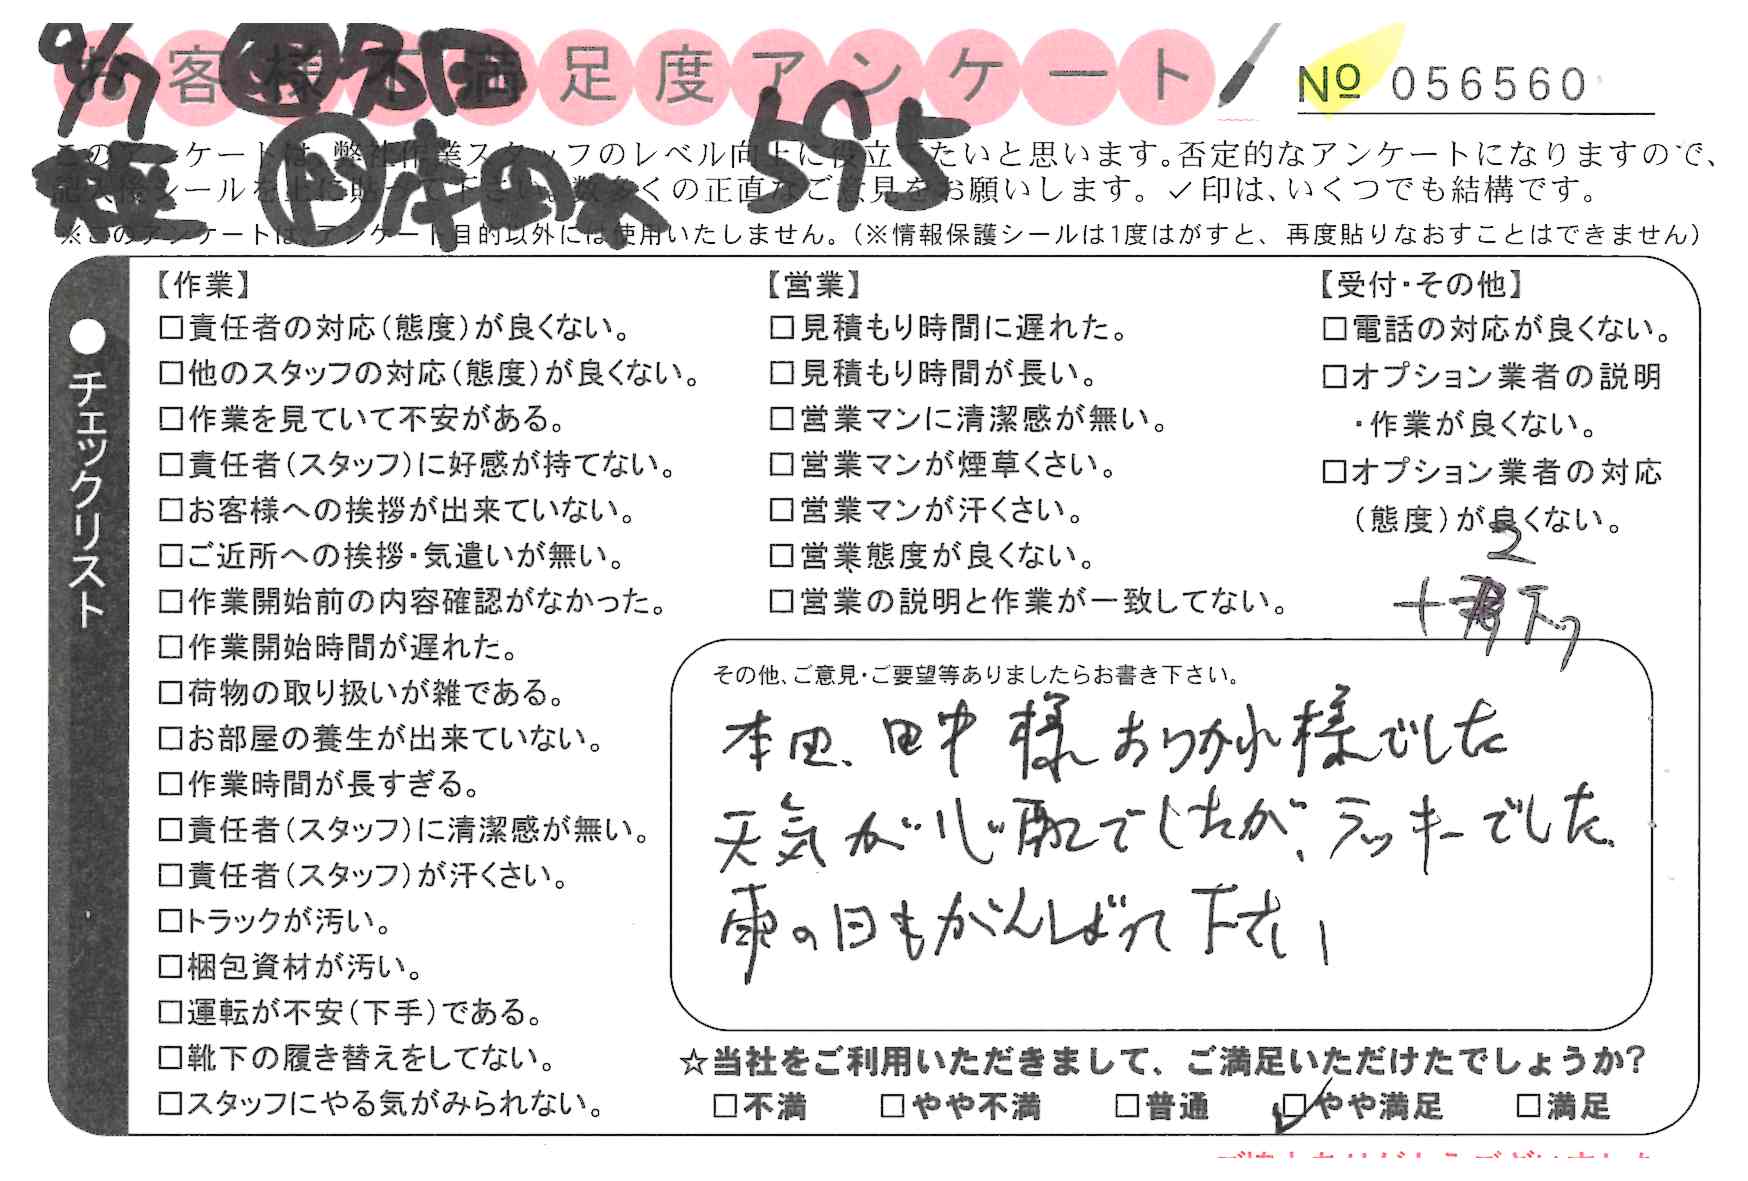 お客様不満足度アンケート
№ 056560
9/7
595
このアンケートは、弊社作業スタッフのレベル向上に役立てたいと思います。否定的なアンケートになりますので、
記入後シールを上に貼って下さい。数多くの正直なご意見をお願いします。✓印は、いくつでも結構です。
※このアンケートは、アンケート目的以外には使用いたしません。(※情報保護シールは1度はがすと、再度貼りなおすことはできません)
●チェックリスト
【作業】
□責任者の対応(態度)が良くない。
□他のスタッフの対応(態度)が良くない。
□作業を見ていて不安がある。
□責任者(スタッフ)に好感が持てない。
□お客様への挨拶が出来ていない。
□ご近所への挨拶・気遣いが無い。
□作業開始前の内容確認がなかった。
□作業開始時間が遅れた。
□荷物の取り扱いが雑である。
□お部屋の養生が出来ていない。
□作業時間が長すぎる。
□責任者(スタッフ)に清潔感が無い。
□責任者(スタッフ)が汗くさい。
□トラックが汚い。
□梱包資材が汚い。
□運転が不安(下手)である。
□靴下の履き替えをしてない。
□スタッフにやる気がみられない。
【営業】
□見積もり時間に遅れた。
□見積もり時間が長い。
□営業マンに清潔感が無い。
□営業マンが煙草くさい。
□営業マンが汗くさい。
□営業態度が良くない。
□営業の説明と作業が一致してない。
【受付・その他】
□電話の対応が良くない。
□オプション業者の説明
・作業が良くない。
□オプション業者の対応
(態度)が良くない。
2
その他、ご意見・ご要望等ありましたらお書き下さい。
本田、田中様おつかれ様でした
天気が心配でしたが、ラッキーでした。
雨の日もがんばって下さい
☆当社をご利用いただきまして、ご満足いただけたでしょうか?
□不満 □やや不満 □普通 ☑やや満足 □満足